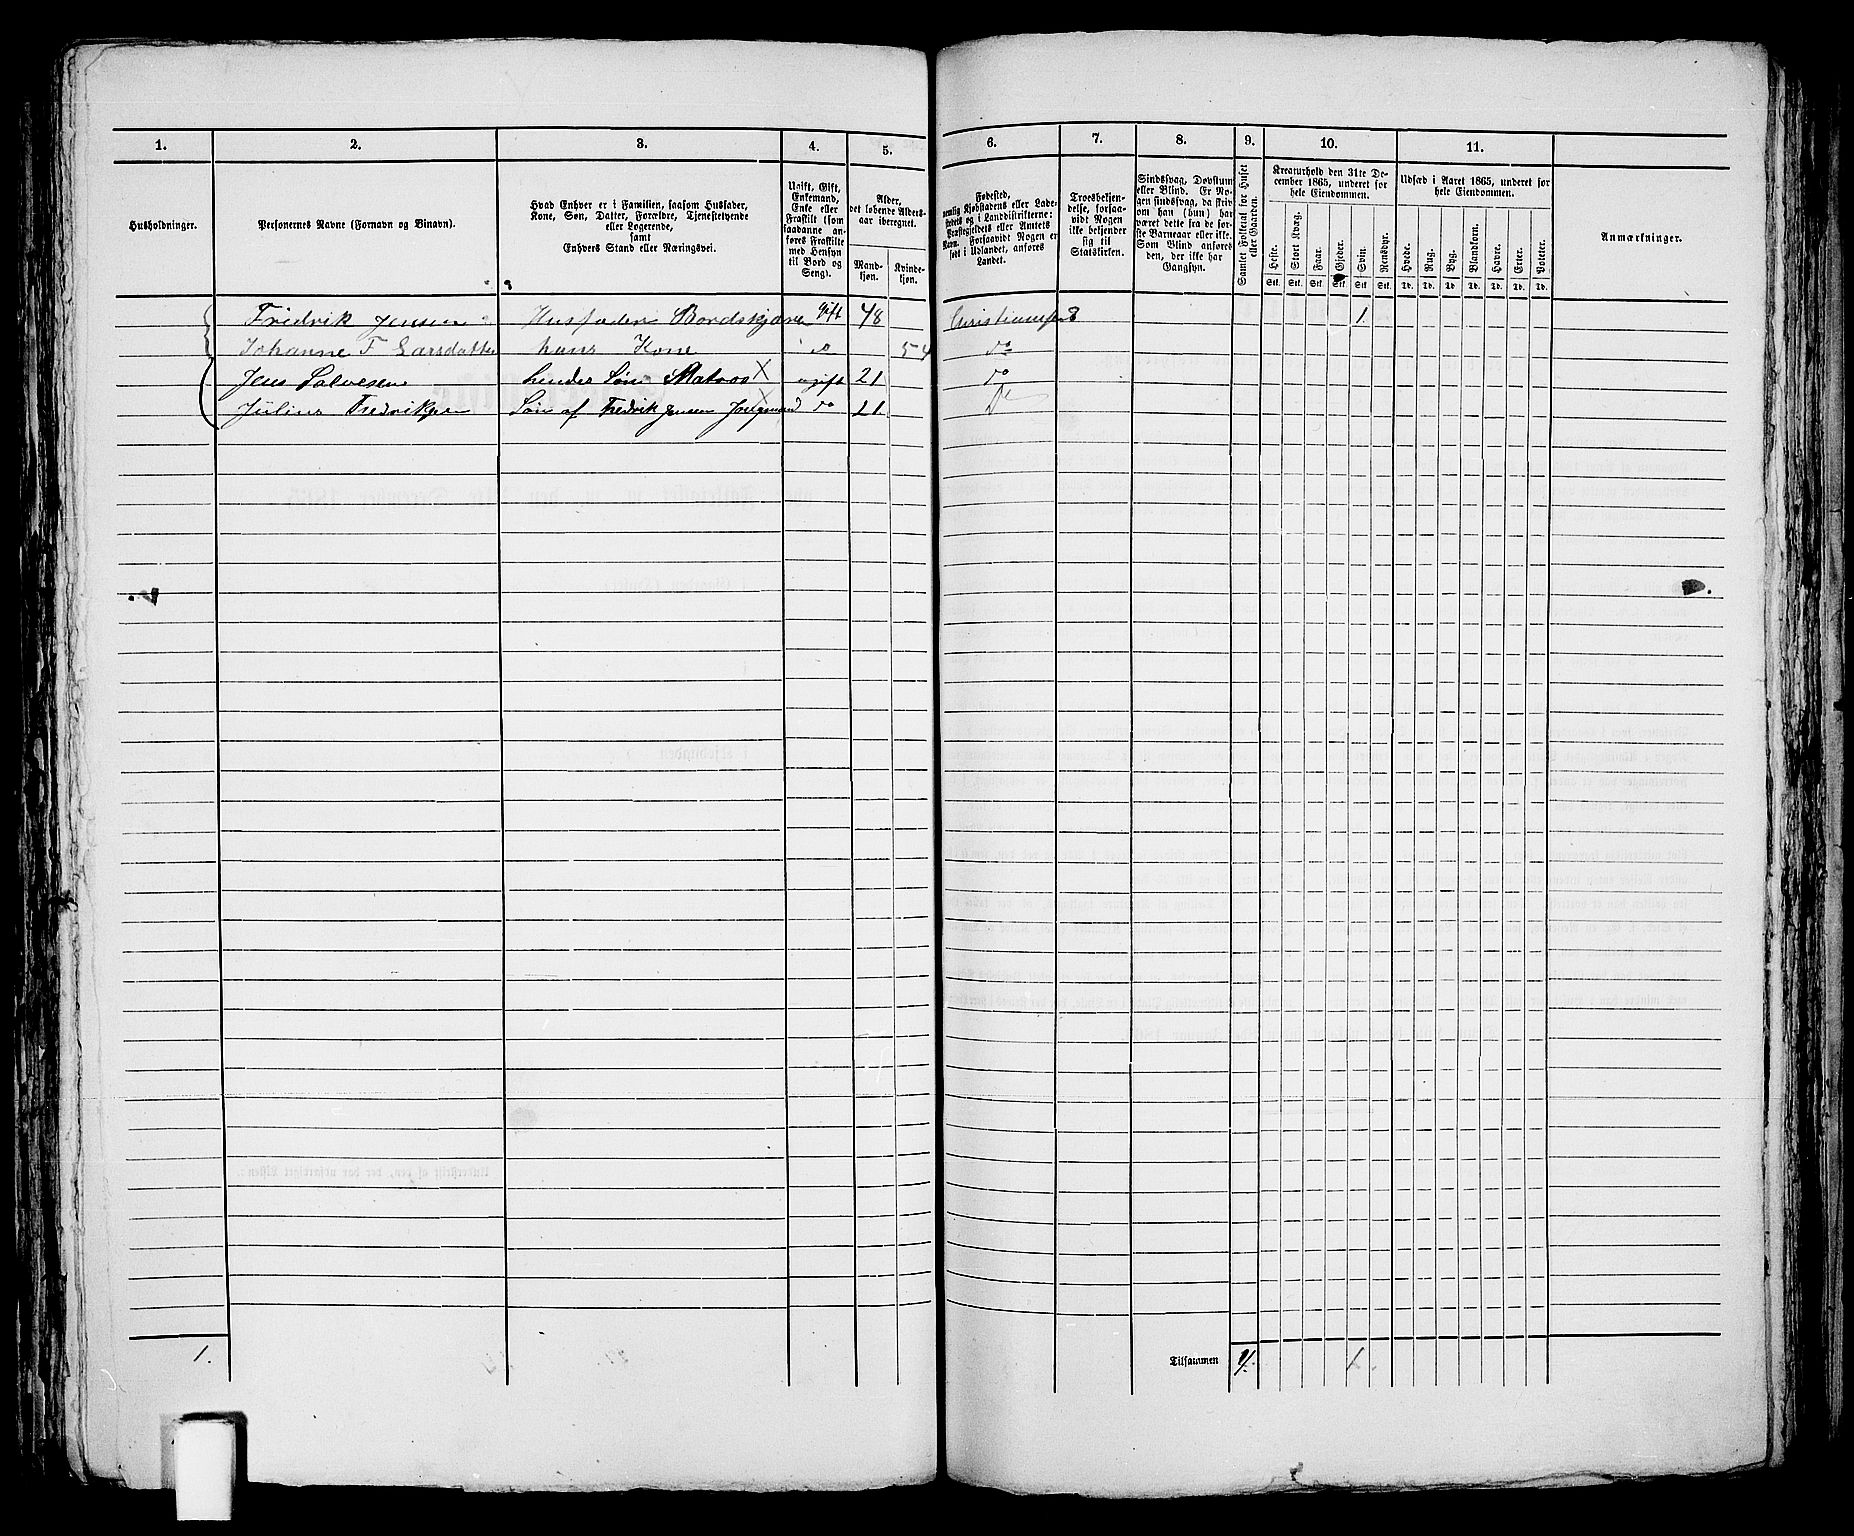 1.
2.
3.
4.
5.
6.
7.
8.
9.
10.
11.
Husholdninger.
Personernes Navne (Fornavn og Binavn).
Hvad Enhver er i Familien, saasom Husfader,
Kone, Søn, Datter, Forældre, Tjenestetyende
eller Logerende,
samt
Enhvers Stand eller Næringsvei.
Ugift, Gift,
Enkemand,
Enke eller
Fraskilt (som
saadanne an-
føres Fraskilte
med Hensyn
til Bord og
Seng).
Alder,
det løbende Alders-
aar iberegnet.
Mand-
kjøn.
Kvinde-
kjøn.
Fødested,
nemlig Kjøbstadens eller Lade-
stedets og i Landdistrikterne:
Præstegjeldets eller Annexets
Navn. Forsaavidt Nogen er
født i Udlandet, anføres
Landet.
Troesbekjen-
delse, forsaa-
vidt Nogen
ikke bekjender
sig til
Statskirken.
Sindssvag, Døvstum
eller Blind. Er No-
gen sindssvag, da skriv
om han (hun) har
været dette fra de før-
ste Barneaar eller ikke.
Som Blind anføres
den, der ikke har
Gangsyn.
Samlet Folketal for Huset
eller Gaarden.
Kreaturhold den 31te De-
cember 1865, underet for
hele Eiendommen.
Heste.
Stort Kvæg.
Faar.
Gjeder.
Svin.
Rensdyr.
Stk. Stk. Stk. Stk. Stk. Stk.
Udsæd i Aaret 1865, underet for
hele Eiendommen.
Hvede.
Rug.
Byg.
Blandkorn.
Havre.
Erter.
Poteter.
Td. Td. Td. Td. Td. Td. Td.
Anmærkninger.
Fredrik Jensen Husfader gift 48 1.
Johanne F Larsdatter hans Kone do 54 do
Jens Salvesen hendes Søn Matros X ugift 21 do
Julius Fredriksen Søn af Fredrik Jensen do 21 Do
1.
Tilsammen 4. 1.